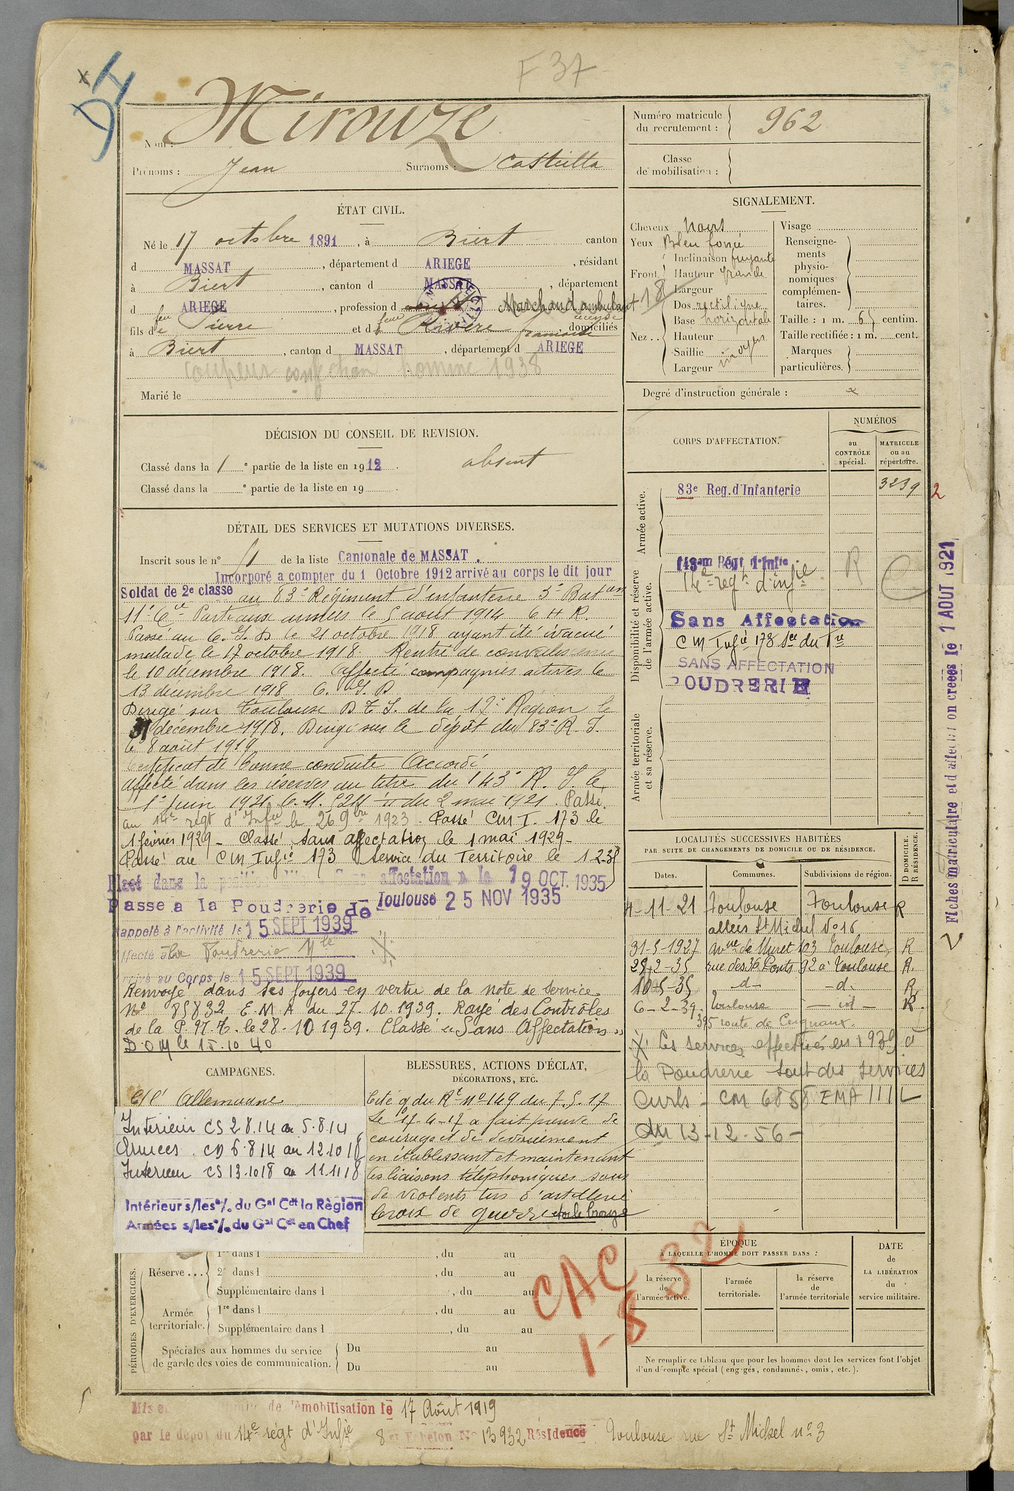 F 37
Mirouze
Nom :
Prénoms : Jean Surnoms : Castetta
Numéro matricule du recrutement : 962
Classe de mobilisation :
ÉTAT CIVIL.
Né le 17 octobre 1891, à Biert canton
d MASSAT, département d ARIEGE, résidant
à Biert, canton d MASSAT, département
d ARIEGE, profession d Marchand ambulant
fils de feu Pierre et de feue Rivère Françoise domiciliés
à Biert, canton d MASSAT, département d ARIEGE
coupeur homme 1938
Marié le
SIGNALEMENT.
Cheveux Noirs
Yeux Bleu foncé
Front Inclinaison fuyante
Hauteur grande
Largeur
Nez Dos rectiligne
Base horizontale
Hauteur
Saillie moyen
Largeur
Visage
Renseignements physionomiques complémentaires.
Taille : 1 m. 65 centim.
Taille rectifiée : 1 m. cent.
Marques particulières.
Degré d'instruction générale :
DÉCISION DU CONSEIL DE REVISION.
Classé dans la 1e partie de la liste en 1912 absent
Classé dans la e partie de la liste en 19
CORPS D'AFFECTATION.
NUMÉROS
au CONTRÔLE spécial.
MATRICULE ou au répertoire.
Armée active.
83e Reg. d'Infanterie 3239 2
Disponibilité et réserve de l'armée active.
143am Régt d'Infie R
14e régt d'infie
Sans Affectation
CM Infie 173 Sce du Tre
SANS AFFECTATION
POUDRERIE
Armée territoriale et sa réserve.
DÉTAIL DES SERVICES ET MUTATIONS DIVERSES.
Inscrit sous le n° 4 de la liste Cantonale de MASSAT.
Incorporé a compter du 1 Octobre 1912 arrivé au corps le dit jour
Soldat de 2e classe au 83e Régiment d'infanterie 3e Baton
11e Cie Parti aux armées le 5 août 1914 6 H R.
Passé au C. I. D le 21 octobre 1918 ayant été évacué
malade le 17 octobre 1918 Rentré de convalescence
le 10 décembre 1918. Affecté compagnies actives le
13 décembre 1918 C. I. D
Dirigé sur Toulouse D T I. de la 17e Région le
31 décembre 1918. Dirigé sur le dépôt du 83e R I.
le 8 août 1919
Certificat de bonne conduite Accordé
Affecté dans les réserves au titre du 143e R. I. le
1er Juin 1921 du 2 mai 1921. Passé
au 14e régt d'Infie le 26 9bre 1923. Passé CM I. 173 le
1 février 1929 - Classé sans affectation le 1 mai 1929 -
Passé au CM Infie 173 Service du Territoire le 1.2.35
Placé dans la position Sans affectation le 19 OCT. 1935
Passe a la Poudrerie de Toulouse 25 NOV 1935
Rappelé à l'activité le 15 SEPT 1939
Affecté à la Poudrerie Nle
Arrivé au Corps le 15 SEPT 1939
Renvoyé dans ses foyers en vertu de la note de service
No 85832 E M A du 27.10.1939. Rayé des Contrôles
de la P. N. T. le 28.10.1939. Classé "Sans Affectation"
D.O.M le 15.10.40
LOCALITÉS SUCCESSIVES HABITÉES
PAR SUITE DE CHANGEMENTS DE DOMICILE OU DE RÉSIDENCE.
Dates. Communes. Subdivisions de région. D DOMICILE. R RÉSIDENCE.
4-11-21 Toulouse Toulouse R
allées St Michel No 16
31-5-1927 Nve de Muret 103 Toulouse R
25-2-35 rue des 3 Ponts 92 à Toulouse R.
10-5-35 -d- -d- R
6-2-39 Toulouse - id - R
395 route de Cugnaux.
Les services effectués en 1939 à
la Poudrerie sont des services
Civils - CM 6858 EMA III L
du 13-12-56 -
Fiches matriculaire et d'affectation créées le 1 AOUT 1921
CAMPAGNES.
Cl' Allemagne
Intérieur CS 2 8.14 au 5.8.14
Armées CD 6.8.14 au 12.10.18
Intérieur CS 13.10.18 au 11.11.18
Intérieur s/les o/. du Gal Cdt la Région
Armées s/les o/. du Gal Cdt en Chef
BLESSURES, ACTIONS D'ÉCLAT,
DÉCORATIONS, ETC.
Cité o du Rt No 149 du 7.5.17
Le 17-4-17 a fait preuve de
courage et de dévouement
en établissant et maintenant
les liaisons téléphoniques sous
de violents tirs d'artillerie
Croix de guerre étoile bronze
CAC 32
1-8
PÉRIODES D'EXERCICES.
Réserve
1re dans l , du au
2e dans l , du au
Supplémentaire dans l , du au
Armée territoriale.
1re dans l , du au
Supplémentaire dans l , du au
Spéciales aux hommes du service de garde des voies de communication.
Du au
Du au
ÉPOQUE
À LAQUELLE L'HOMME DOIT PASSER DANS :
la réserve de l'armée active.
l'armée territoriale.
la réserve de l'armée territoriale
DATE de LA LIBÉRATION du service militaire.
Ne remplir ce tableau que pour les hommes dont les services font l'objet
d'un décompte spécial (engagés, condamnés, omis, etc.).
Mis en de démobilisation le 17 Août 1919
par le dépôt du 14e régt d'Infie 8e Echelon No 13932 Résidence Toulouse rue St Michel no 3